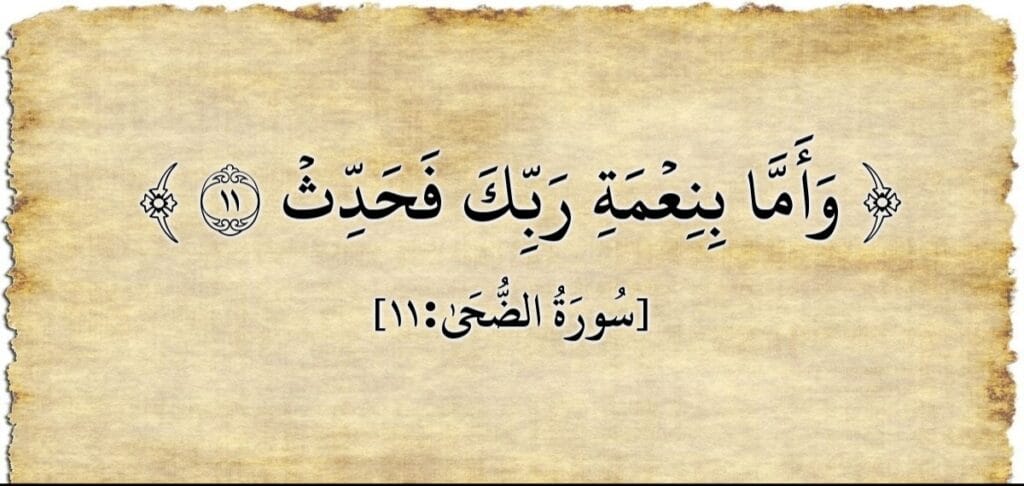 ﴿ وَأَمَّا بِنِعۡمَةِ رَبِّكَ فَحَدِّثۡ ١١ ﴾
[سُورَةُ الضُّحَىٰ:١١]